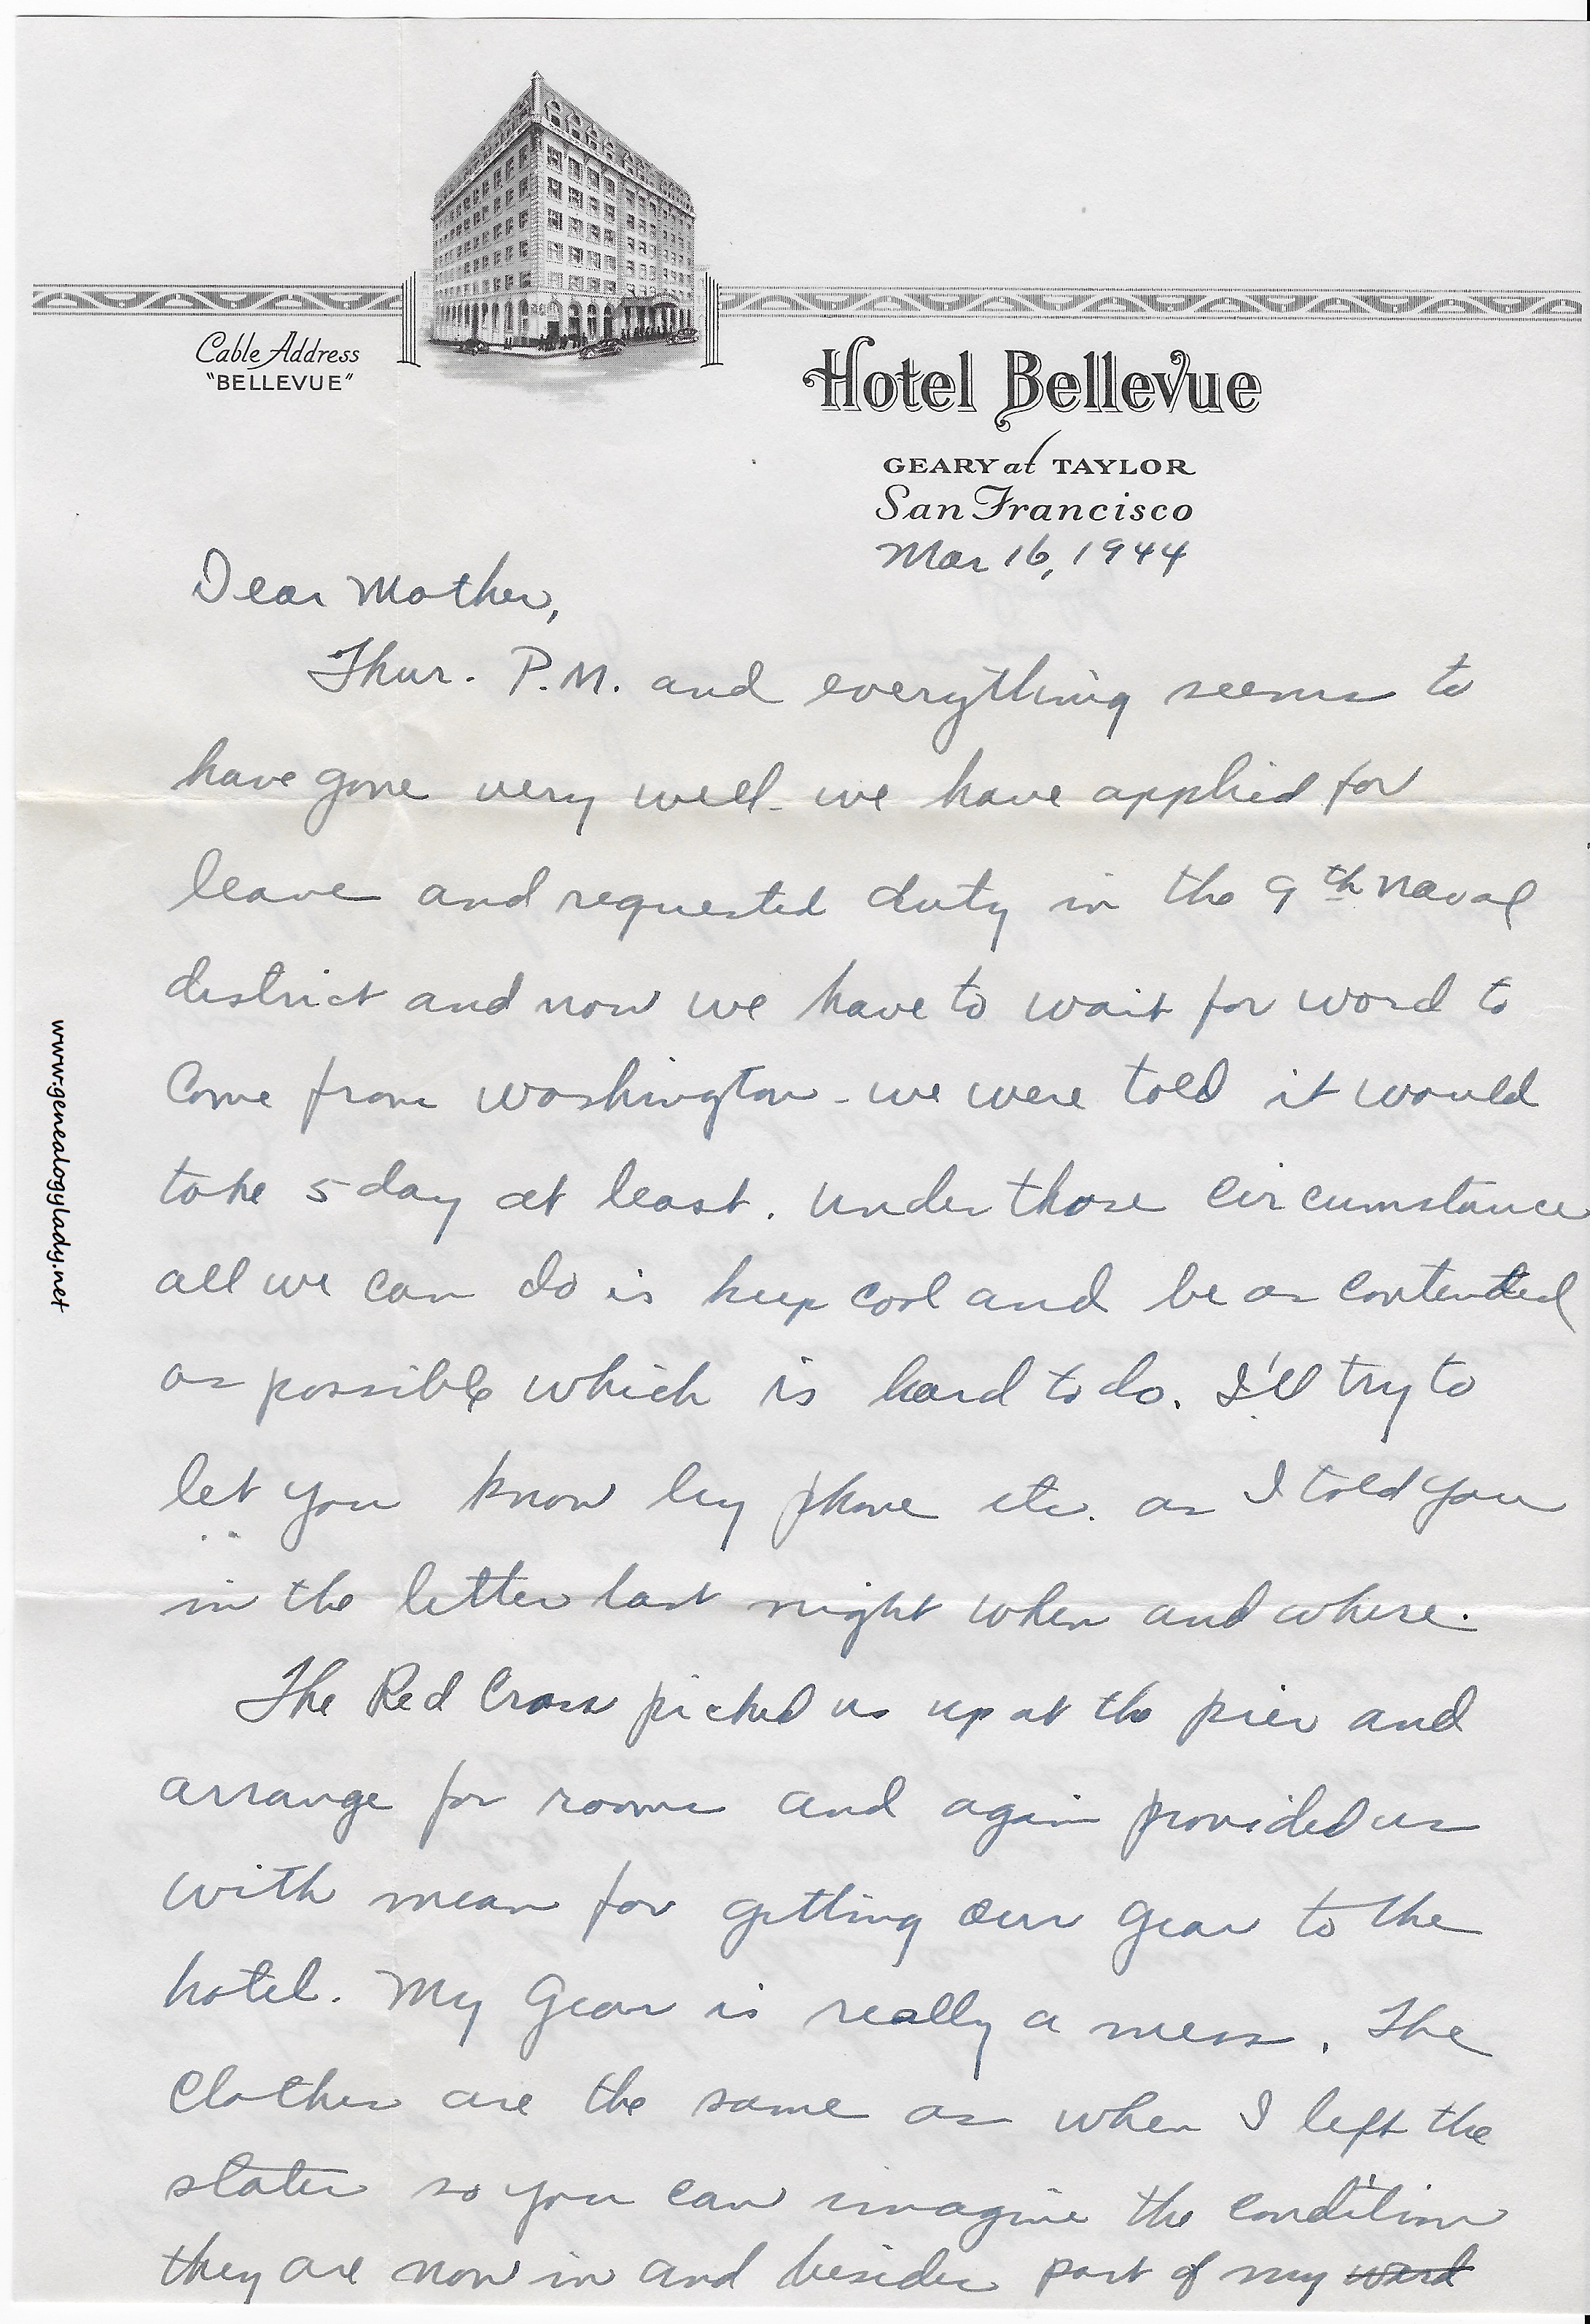 Cable Address
"BELLEVUE"
Hotel Bellevue
GEARY at TAYLOR
San Francisco
Mar 16, 1944
Dear Mother,
Thur. P.M. and everything seems to
have gone very well - we have applied for
leave and requested duty in the 9th Naval
district and now we have to wait for word to
come from Washington - we were told it would
take 5 day at least. Under those circumstance
all we can do is keep cool and be as contented
as possible which is hard to do. I'll try to
let you know by phone etc. as I told you
in the letter last night when and where.
The Red Cross picked us up at the pier and
arrange for rooms and again provided us
with mean for getting our gear to the
hotel. My Gear is really a mess. The
clothes are the same as when I left the
states so you can imagine the condition
they are now in and besides part of my ward
www.genealogylady.net